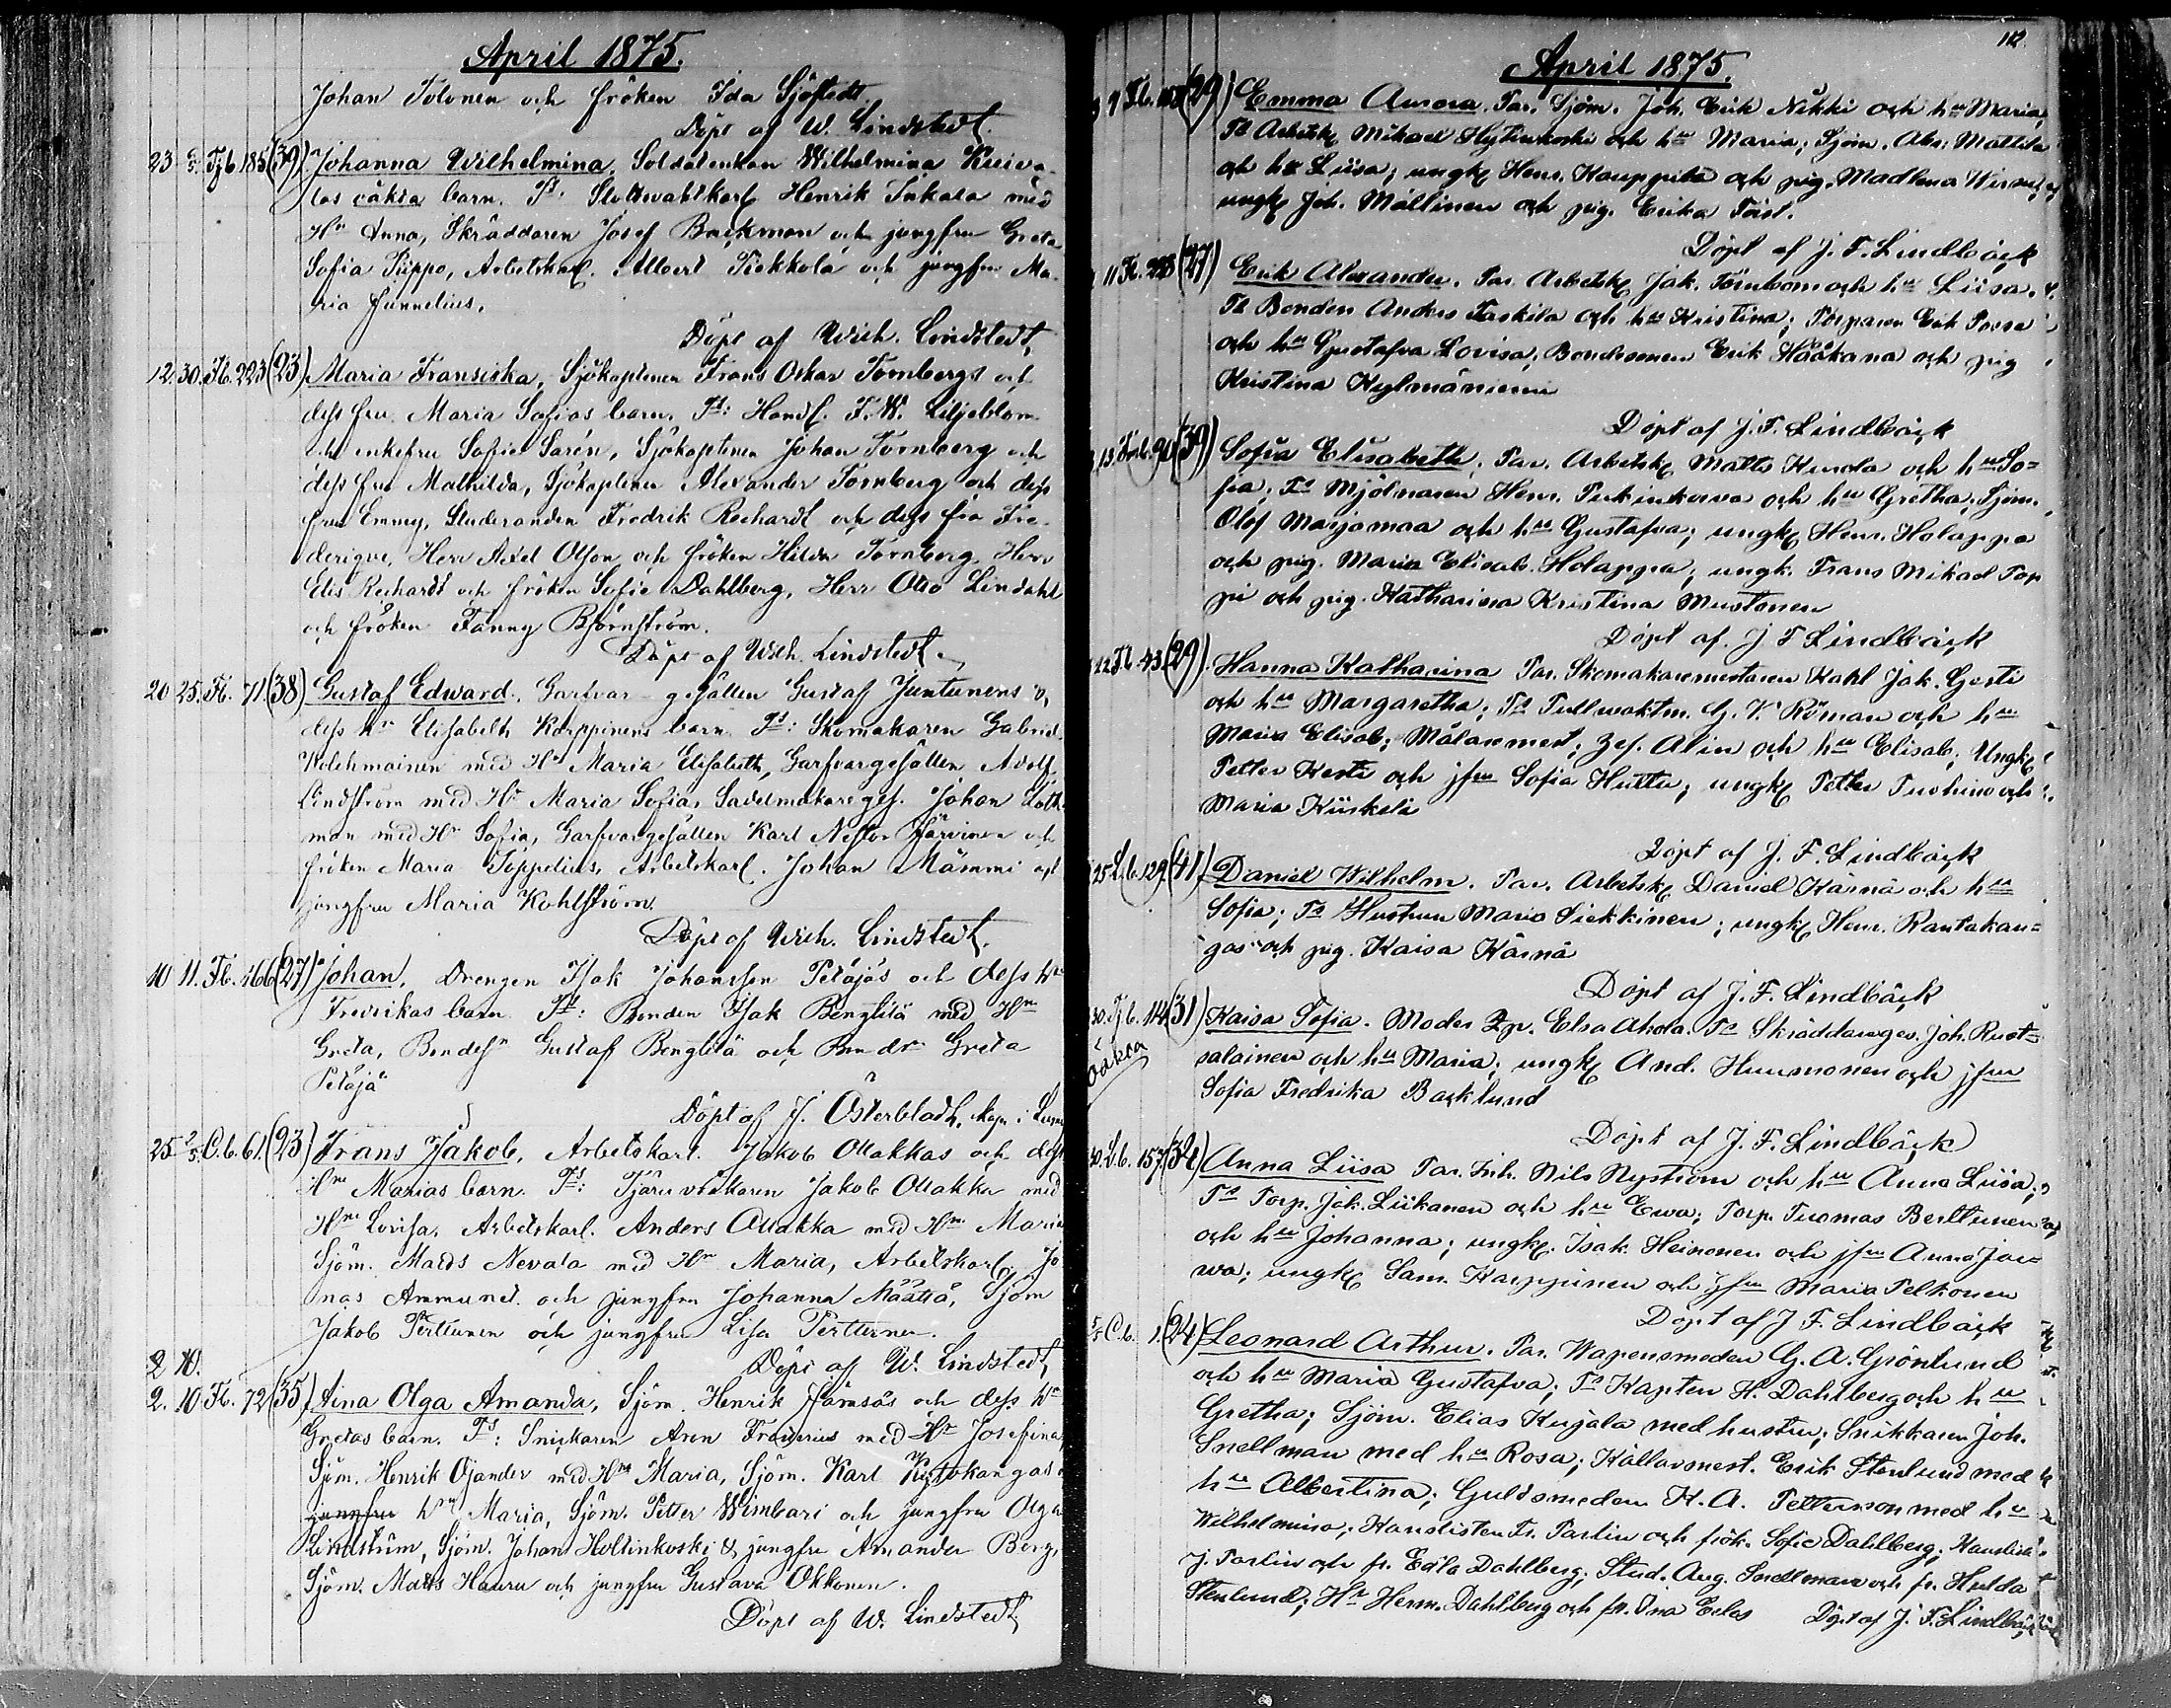 April 1875.
Johan Tolonen och fröken Ida Sjöstedt.
Döpt af W. Lindstedt.
23 2/5. Tjb. 185 (39) Johanna Wilhelmina, Soldatenkan Wilhelmina Kuiva-
las oäkta barn. Ts. Slottswaktkarl Henrik Takala med
Hu Anna, Skräddaren Josef Backman och jungfru Greta
Sofia Piippo, Arbetskarl. Albert Tiekkola och jungfru Ma-
ria Junnelius.
Döpt af Wilh. Lindstedt.
12. 30. Fb. 223 (23) Maria Fransiska, Sjökaptenen Frans Oskar Tornbergs och
dess fru Maria Sofias barn. Ts: Handl. F. W. Liljeblom
och enkefru Sofie Sarén, Sjökaptenen Johan Tornberg och
dess fru Mathilda, Sjökaptenen Alexander Tornberg och dess
fru Emmy, Studeranden Fredrik Rechardt och dess frö Fre-
derique, Herr Axel Olson och fröken Hilda Tornberg, Herr
Elis Rechardt och fröken Sofie Dahlberg, Herr Otto Lindahl
och fröken Fanny Björnström.
Döpt af Wilh. Lindstedt.
20 25. Fb. 71. (38) Gustaf Edward. Garfvar-gesällen Gustaf Juntunens o,
dess hu Elisabeth Karppinens barn. Ts: Skomakaren Gabriel
Kolehmainen med Hu Maria Elisabeth, Garfvargesällen Adolf
Lindström med Hu Maria Sofia, Sadelmakareges. Johan Roth-
man med Hu Sofia, Garfvargesällen Karl Nestor Järvinen och
fröken Maria Toppelius, Arbetskarl. Johan Mämmi och
jungfru Maria Kohlström.
Döpt af Wilh. Lindstedt.
10 11. Fb. 166 (27) Johan, Drengen Isak Johansson Petäjäs och dess hu
Fredrikas barn. Ts: Bonden Isak Bengtilä med Hu
Greta, Bondesn Gustaf Bengtilä och Bondr Greta
Petäjä
Döpt af J. Österbladh, kap. i
25 2/5. C.b. 61. (23) Frans Jakob, Arbetskarl. Jakob Ollakkas och dess
Hu Marias barn. Ts: Tjäruvräkaren Jakob Ollakka med
Hu Lovisa, Arbetskarl. Anders Ollakka med Hu Maria
Sjöm. Matts Nevala med Hu Maria, Arbetskarl. Jo
nas Ammunet och jungfru Johanna Määttä, Sjöm
Jakob Perttunen och jungfru Lisa Perttunen.
2 10. Döpt af W. Lindstedt,
2. 10. Fb. 72 (35) Aina Olga Amanda, Sjöm. Henrik Jämsäs och dess hu
Gretas barn. Ts: Snickaren Aron Franserius med Hu Josefina,
Sjöm. Henrik Ojander med Hu Maria, Sjöm. Karl Kytökangas
jungfru hu Maria, Sjöm. Petter Wimbari och jungfru Olga
Lindström, Sjöm. Johan Holtinkoski & jungfru Amanda Berg,
Sjöm. Matts Hauru och jungfru Gustava Okkonen.
Döpt af W. Lindstedt
112.
April 1875.
9 Fb. (29) Emma Aurora. Par. Sjöm. Joh. Erik Nikki och hu Maria,
Ts Arbetsk Mikael Hytinkoski och hu Maria; Sjöm. Abr. Mattila
och hu Liisa; ungk Henr. Kauppila och pig. Madlena
ungk Joh. Mällinen och pig. Erika Töist.
Döpt af J. F. Lindbäck
11 Fb. 228 (27) Erik Alexander. Par. Arbetsk Jak. Törnbom och hu Liisa.
Ts Bonden Anders Taskila och hu Kristina; Torparen Erik Tossa
och hu Gustafva Lovisa; Bondesonen Erik Hååkana och pig
Kristina Kylmäniemi
Döpt af J. F. Lindbäck
13. 90 (39) Sofia Elisabeth. Par. Arbetsk Matts Kurula och hu So=
fia. Ts Mjölnaren Henr. Pirkinkorva och hu Gretha; Sjöm.
Olof Marjamaa och hu Gustafva; ungk Henr. Holappa
och pig. Maria Elisab. Holappa; ungk. Frans Mikael Top
pi och pig. Katharina Kristina Mustonen
Döpt af. J F Lindbäck
22 Fb 43 (29) Hanna Katharina Par. Skomakaremästaren Karl Jak. Gerts
och hu Margaretha; Ts Tullvaktm. G. V. Röman och hu
Maria Elisab; Målaremest. Zef. Alin och hu Elisab; Ungk
Petter Kesti och jfru Sofia Huttu; ungk Petter Tuohino och
Maria Kiiskelä
Döpt af J. F. Lindbäck
25 L.b. 129 (41) Daniel Wilhelm. Par. Arbetsk Daniel Kärnä och hu
Sofia; Ts Hustrun Maria Siekkinen; ungk Henr. Rantakan=
gas och pig. Kaisa Kärnä
Döpt af J. F. Lindbäck
30. Tjb. 114 (31) Kaisa Sofia. Moder Zp. Elsa Ahola. Ts Skräddareges. Joh. Ruot=
oäkta
salainen och hu Maria; ungk And. Huumonen och jfru
Sofia Fredrika Backlund
Döpt af J. F. Lindbäck
30. L.b. 157 (32) Anna Liisa Par. Inh. Nils Nyström och hu Anna Liisa;
Ts Torp. Jak. Liikanen och hu Ewa; Torp. Tuomas Berttunen
och hu Johanna; ungk. Isak Heinonen och jfru Anna Jär=
wa; ungk Sam. Karppinen och jfru Maria Pelkonen
Döpt af J F Lindbäck
5/5 C.b. 1. (24) Leonard Arthur. Par. Wapensmeden G. A. Grönlund
och hu Maria Gustafva; Ts Kapten H. Dahlberg och hu
Gretha; Sjöm. Elias Kujala med hustru; Snikkaren Joh.
Snellman med hu Rosa; Källarmest. Erik Stenlund med
hu Albertina; Guldsmeden K. A. Petterson med hu
Wilhelmina; Kanslisten Fr. Parlin och frök. Sofie Dahlberg; Kanslist
J. Parlin och fr. Edla Dahlberg; Stud. Aug. Snellman och fr. Hulda
Stenlund; Hr Herm. Dahlberg och fr. Ina Eelos Döpt af J. F. Lindbäck